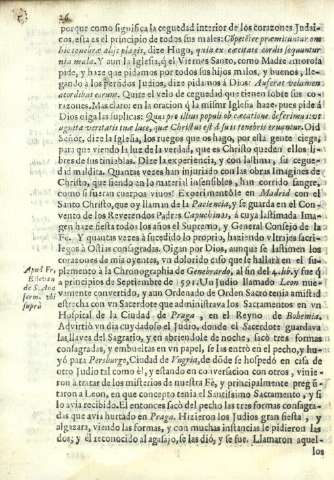 26
porque como significa la ceguedad interior de los corazones Judai-
cos, esta es el principio de todos sus males:
bic tenebræ alijs plagis, dize Hugo, quia ex cæcitate cordis sequuntur
mala. Y aun la Iglesia, q̃ el Viernes Santo, como Madre amorosa
pide, y haze que pidamos por todos sus hijos malos, y buenos, lle-
gando à los perfidos Judios, dize pidamos à Dios: Vt auferat velamen
de cordibus eorum. Quite el velo de ceguedad que tienen sobre sus co-
razones. Mas claro: en la oracion q̃ la misma Iglesia haze, pues pide á
Dios oiga las suplicas: Quas pro illius populi obcæcatione deferimus: vt
agnita veritatis tuæ luce, quæ Christus est à suis tenebris eruantur. Oid
Señor, dize la Iglesia, los ruegos que os hago, por esta gente ciega,
para que viendo la luz de la verdad, que es Christo queden ellos li-
bres de sus tinieblas. Dize la experiencia, y con lastima, su cegue-
dad maldita. Quantas vezes han injuriado con las obras Imagines de
Christo, que siendo en lo material insensibles, han corrido sangre,
como si fueran cuerpos vivos? Experimentòse en Madrid con el
Santo Christo, que oy llaman de la Paciencia, y se guarda en el Con-
vento de los Reverendos Padres Capuchinos, à cuya lastimada Ima-
gen haze fiesta todos los años el Supremo, y General Consejo de la
Fè. Y quantas vezes à sucedido lo proprio, haziendo vltrajes sacri-
legos à Ostias consagradas. Oigan por Dios, aunque se lastimen los
corazones de mis oyentes, vn dolorido caso que se hallarà en el su-
plemento à la Chronographia de Genebrardo, al fin del 4. lib. y fue q̃
a principios de Septiembre de 1591. Un Judio llamado Leon nue-
vamente convertido, y aun Ordenado de Orden Sacro tenia amistad
estrecha con vn Sacerdote que administrava los Sacramentos en vn
Hospital de la Ciudad de Praga, en el Reyno de Bohemia.
Advirtiò vn dia cuydadoso el Judio, donde el Sacerdote guardava
las llaves del Sagrario, y en abriendole de noche, sacò tres formas
consagradas, y embueltas en vn papel, se las entrò en el pecho, y hu-
yò para Persburgo, Ciudad de Vngria, de dõde se hospedò en casa de
otro Judio tal como èl, y estando en conversacion con otros, vinie-
ron à tratar de los misterios de nuestra Fè, y principalmente pregũ-
taron a Leon, en que concepto tenia el Santissimo Sacramento, y si
lo avia recibido. El entonces sacò del pecho las tres formas consagra-
das que avia hurtado en Praga. Hizieron los Judios gran fiesta, y
algazara, viendo las formas, y con muchas instancias le pidieron las
dos; y èl reconocido al agasajo, se las diò, y se fue. Llamaron aquel-
los
Apud Fr.
supra